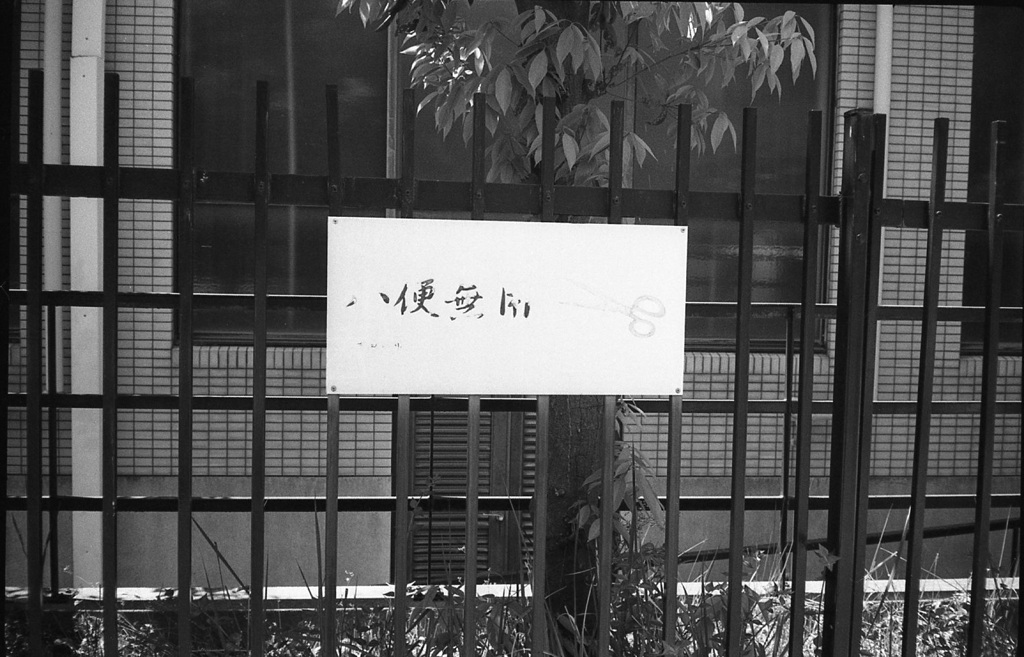 小便無用